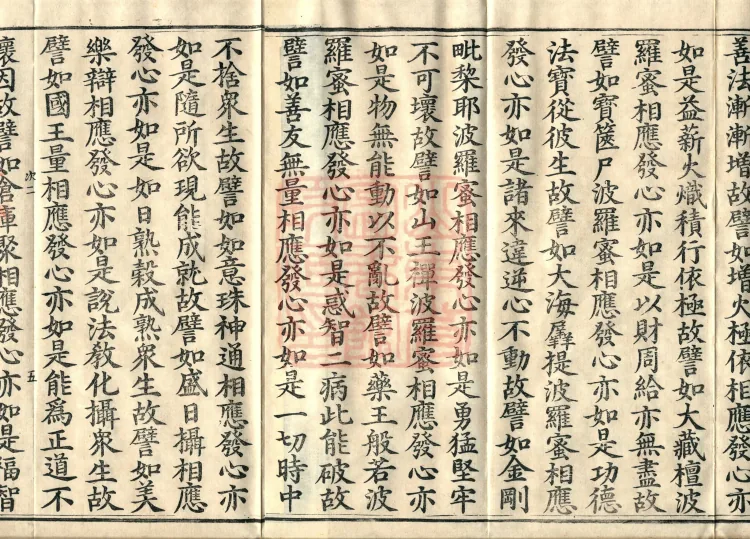 善法漸漸增故譬如增火極依相應發心亦
如是益薪火熾積行依極故譬如大藏檀波
羅蜜相應發心亦如是以財周給亦無盡故
譬如寶篋尸波羅蜜相應發心亦如是功德
法寶從彼生故譬如大海羼提波羅蜜相應
發心亦如是諸來違逆心不動故譬如金剛
毗黎耶波羅蜜相應發心亦如是勇猛堅牢
不可壞故譬如山王禪波羅蜜相應發心亦
如是物無能動以不亂故譬如藥王般若波
羅蜜相應發心亦如是惑智二病此能破故
譬如善友無量相應發心亦如是一切時中
不捨眾生故譬如如意珠神通相應發心亦
如是隨所欲現能成就故譬如盛日攝相應
發心亦如是如日熟穀成熟眾生故譬如美
樂辯相應發心亦如是說法教化攝眾生故
譬如國王量相應發心亦如是能為正道不
壞因故譬如倉庫聚相應發心亦如是福智
次二
五